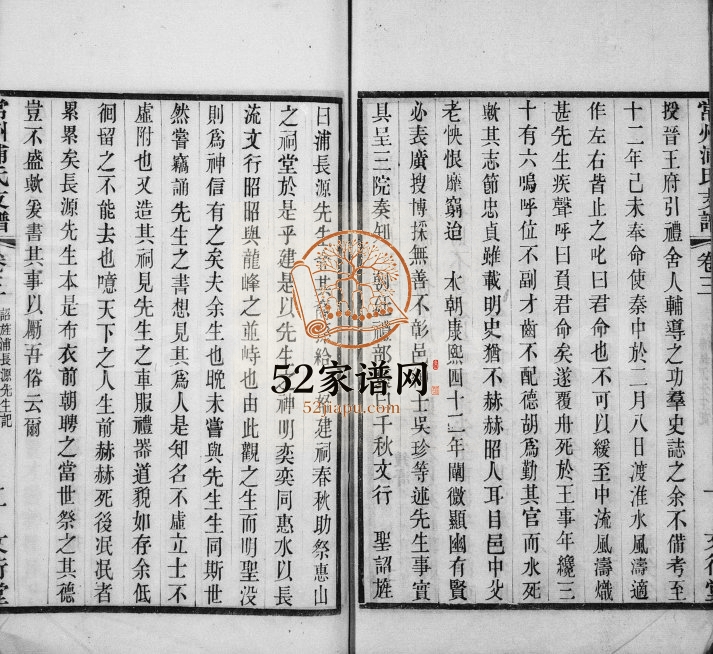 常州浦氏支譜
卷三
文行堂
授晉王府引禮舍人輔導之功羣史誌之余不備考至
十二年己未奉命使秦中於二月八日渡淮水風濤適
作左右皆止之叱曰君命也不可以緩至中流風濤熾
甚先生疾聲呼曰負君命矣遂覆舟死於王事年纔三
十有六嗚呼位不副才齒不配德胡爲勤其官而水死
歟其志節忠貞雖載明史猶不赫赫昭人耳目邑中父
老怏恨靡窮迨 本朝康熙四十二年闡微顯幽有賢
必表廣搜博採無善不彰邑 士吳珍等述先生事實
具呈三院奏知 朝 禮部 曰千秋文行 聖詔旌
曰浦長源先生 給 建祠春秋助祭惠山
之祠堂於是乎建是以先生 神明奕奕同惠水以長
流文行昭昭與龍峰之並峙也由此觀之生而明聖沒
則爲神信有之矣夫余生也晚未嘗與先生生同斯世
然嘗竊誦先生之書想見其爲人是知名不虛立士不
虛附也又造其祠見先生之車服禮器道貌如存余低
徊留之不能去也噫天下之人生前赫赫死後泯泯者
累累矣長源先生本是布衣前朝聘之當世祭之其德
豈不盛歟爰書其事以勵吾俗云爾
常州浦氏支譜
卷三
詔旌浦長源先生記
二
文行堂
52家谱网
52jiapu.com